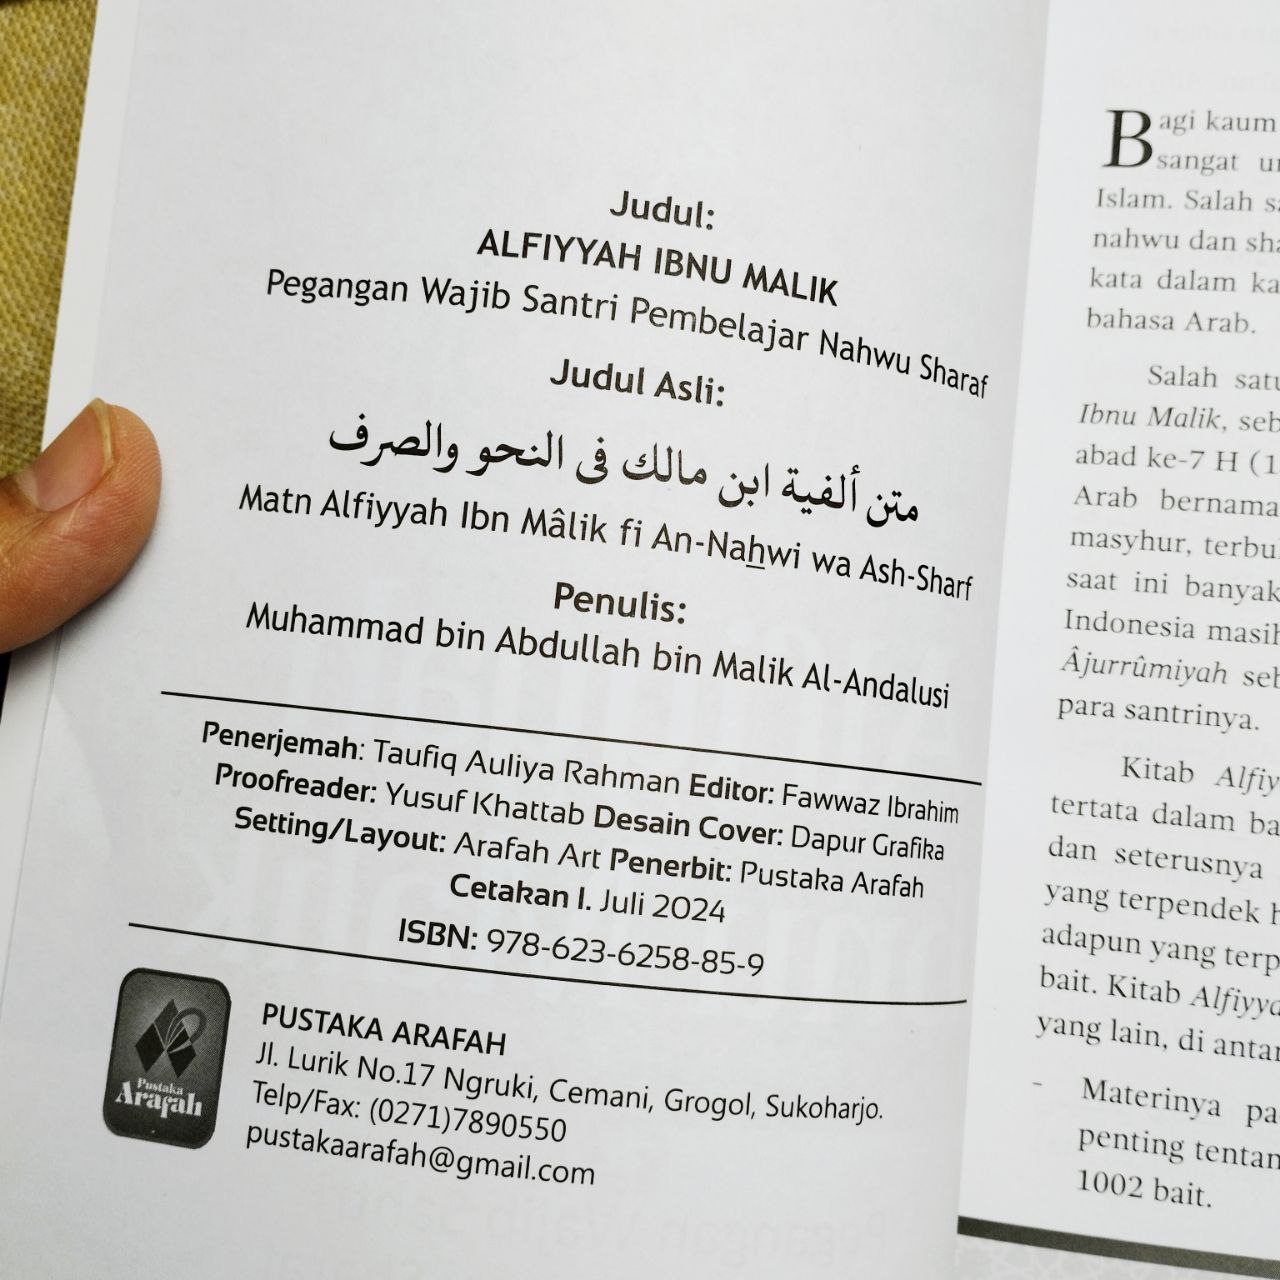 Judul:
ALFIYYAH IBNU MALIK
Pegangan Wajib Santri Pembelajar Nahwu Sharaf
Judul Asli:
متن ألفية ابن مالك فى النحو والصرف
Matn Alfiyyah Ibn Mâlik fi An-Naẖwi wa Ash-Sharf
Penulis:
Muhammad bin Abdullah bin Malik Al-Andalusi
Penerjemah: Taufiq Auliya Rahman Editor: Fawwaz Ibrahim
Proofreader: Yusuf Khattab Desain Cover: Dapur Grafika
Setting/Layout: Arafah Art Penerbit: Pustaka Arafah
Cetakan I. Juli 2024
ISBN: 978-623-6258-85-9
Pustaka
Arafah
PUSTAKA ARAFAH
Jl. Lurik No.17 Ngruki, Cemani, Grogol, Sukoharjo.
Telp/Fax: (0271)7890550
pustakaarafah@gmail.com
Bagi kaum
sangat
Islam. Salah
nahwu dan
kata dalam
bahasa Arab.
Salah
Ibnu Malik,
abad ke-7 H
Arab bernama
masyhur,
saat ini banyak
Indonesia
Âjurrûmiyah
para santrinya.
Kitab
tertata dalam
dan seterusnya
yang terpendek
adapun yang
bait. Kitab
yang lain, di
- Materinya
penting
1002 bait.